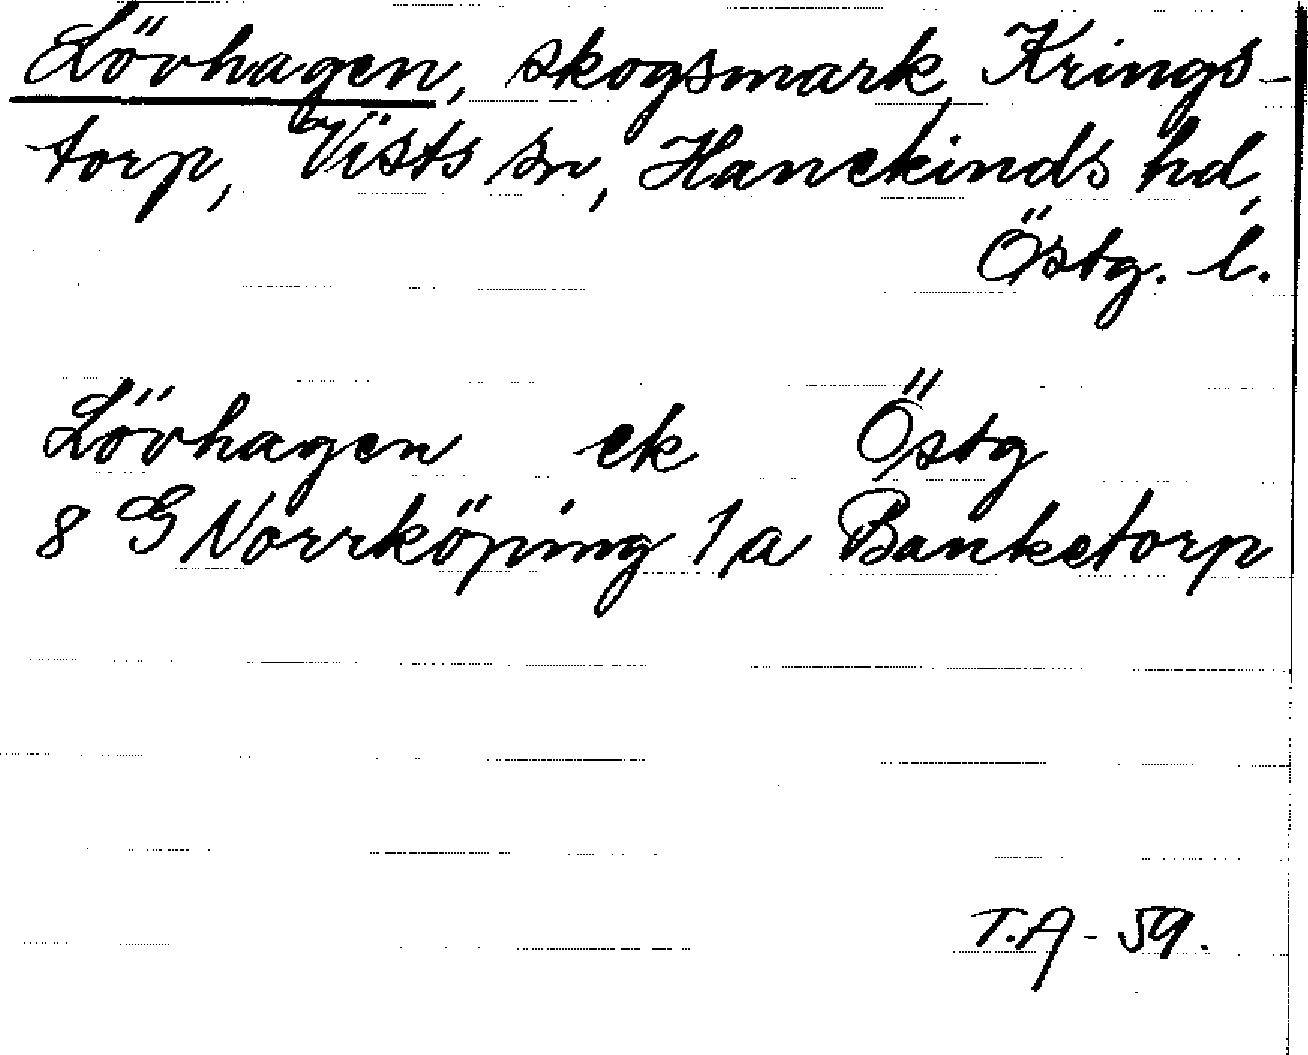 Lövhagen, skogsmark, Krings-
torp, Vists sn, Hanekinds hd,
Östg. l.
Lövhagen ek Östg
8 G Norrköping 1 a Banketorp
T.A - 59.